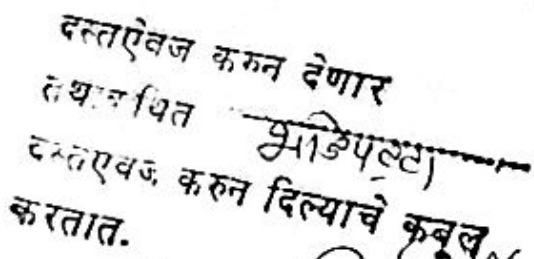 दस्तऐवज करुन देणार
तथाकथित भाडेपट्टा
दस्तऐवज करुन दिल्याचे कबूल
करतात.